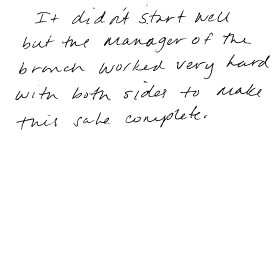 It didn't start well
but the manager of the
branch worked very hard
with both sides to make
this sale complete.